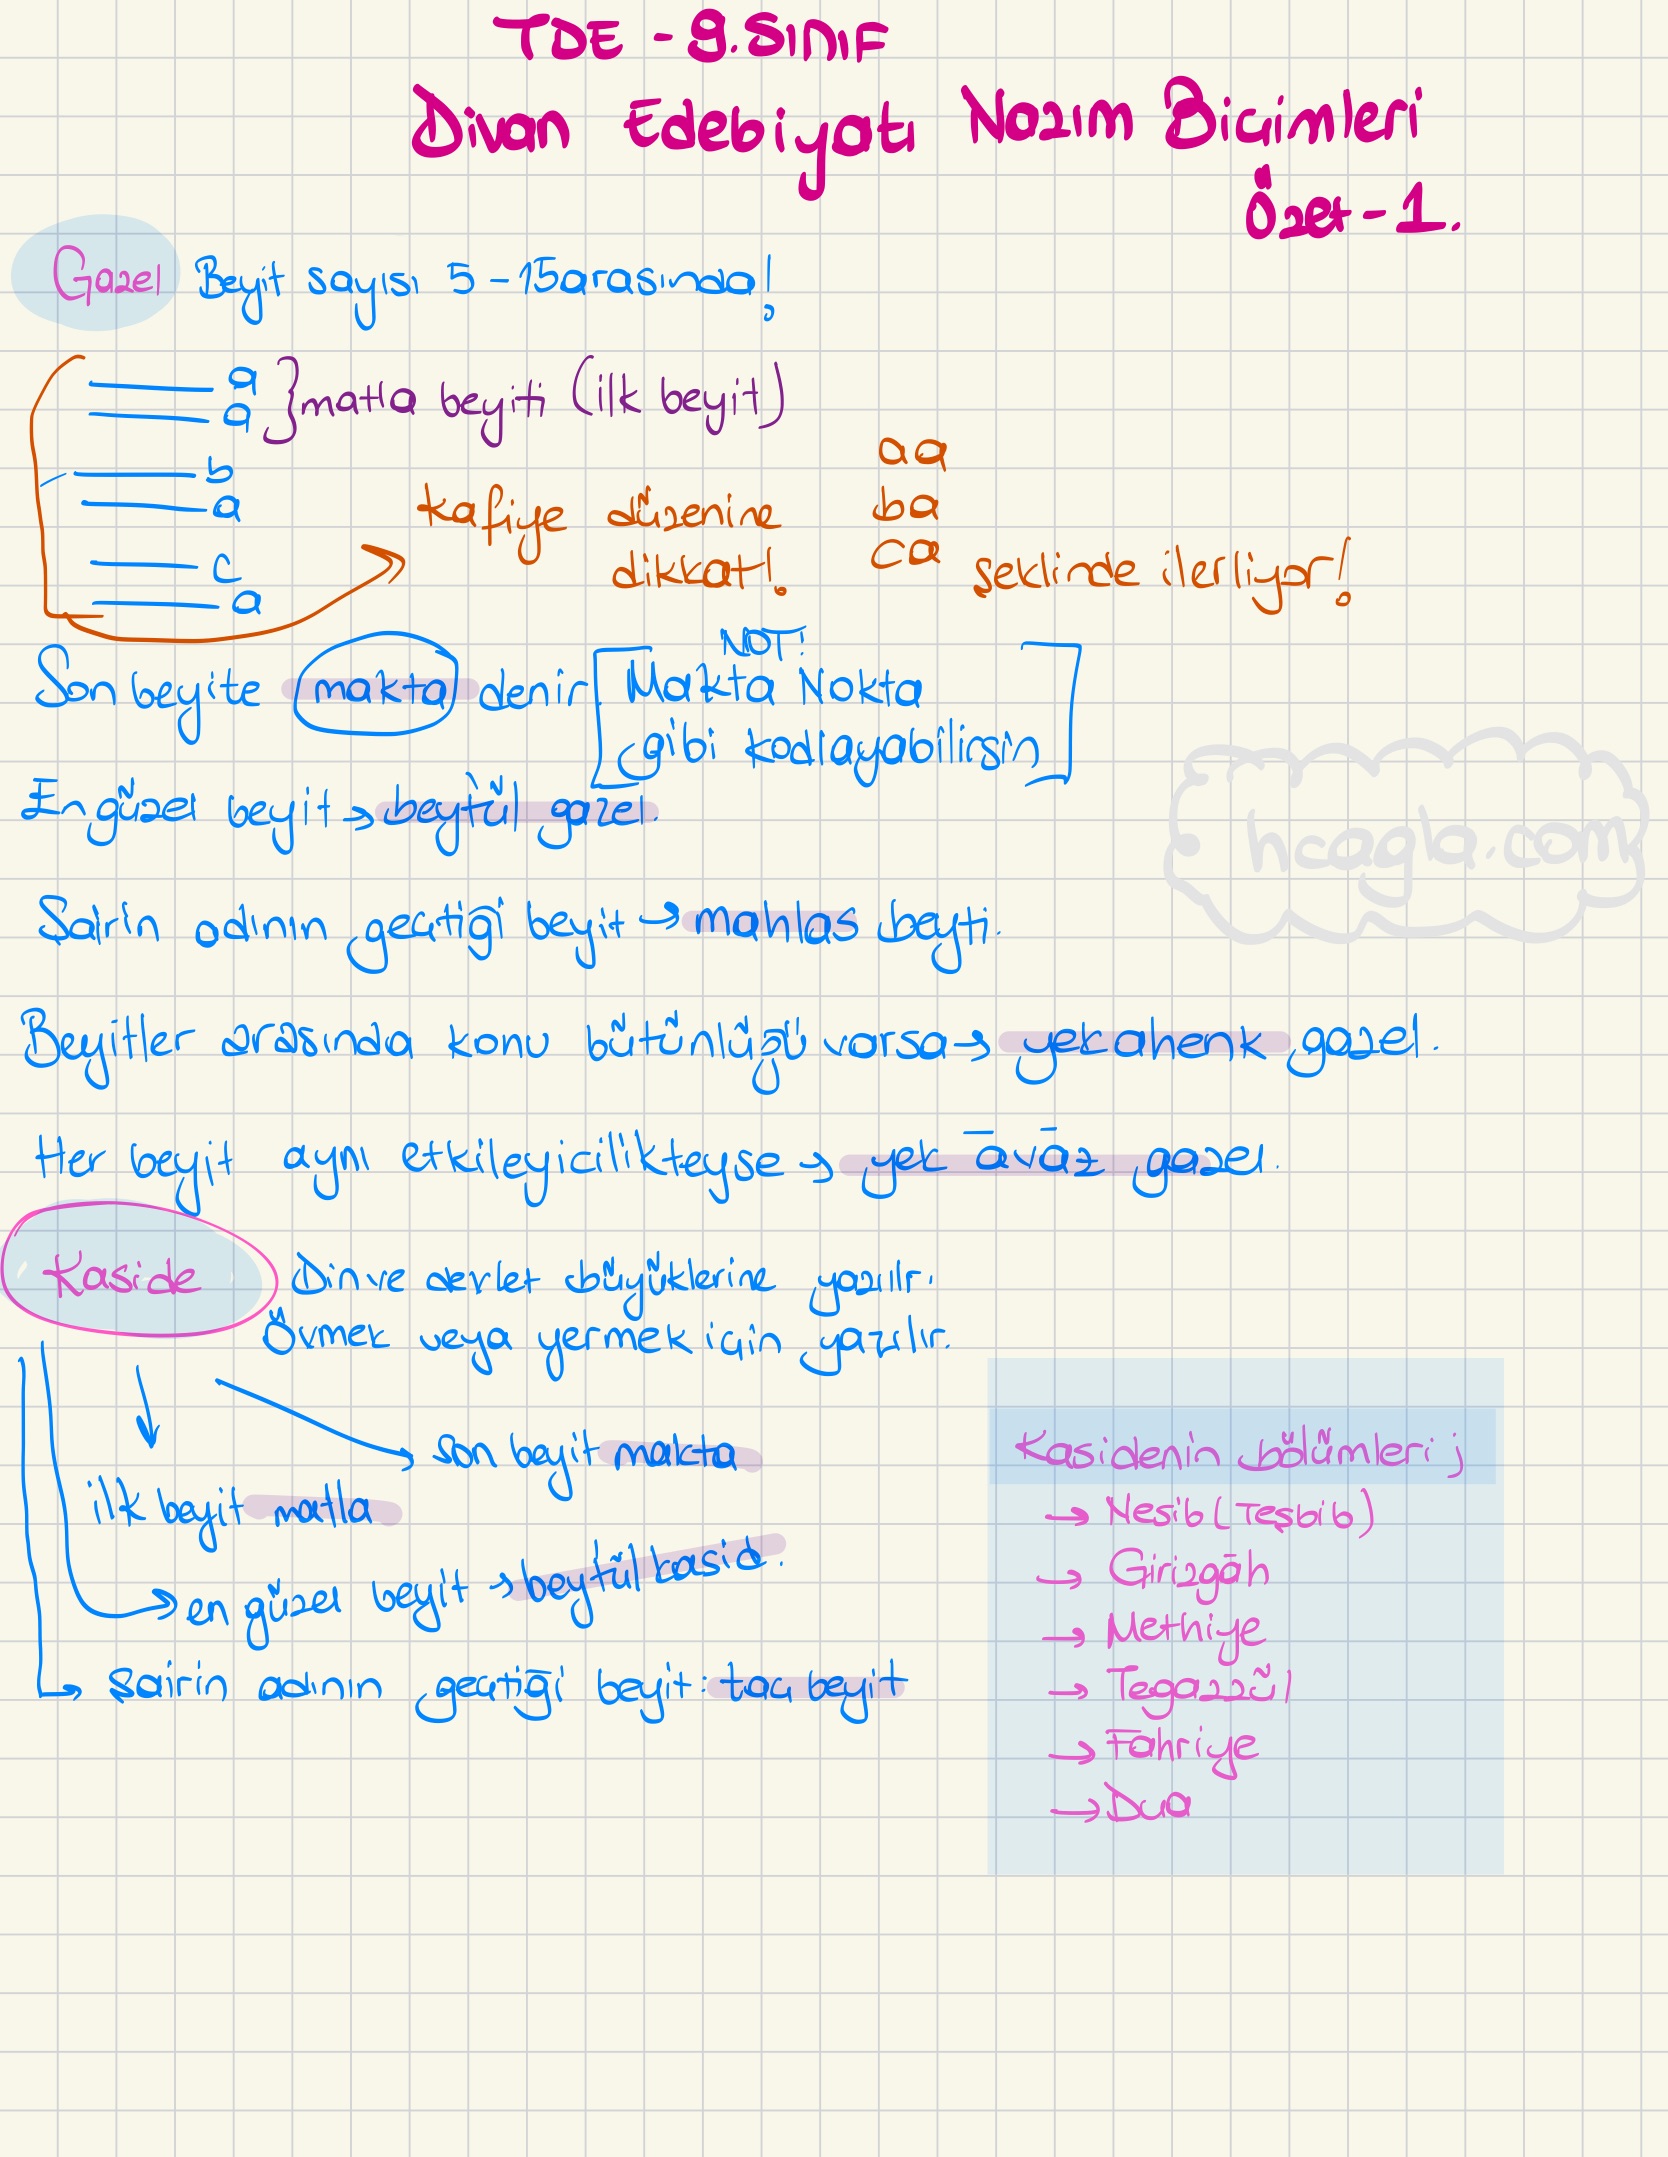 TDE - 9.SINIF
Divan Edebiyatı Nazım Biçimleri
Özet - 1.
Gazel Beyit sayısı 5 - 15 arasında!
a
a } matla beyiti (ilk beyit)
b
a
c
a
kafiye düzenine
dikkat!
aa
ba
ca şeklinde ilerliyor!
Son beyite makta denir
NOT!
[Makta Nokta
gibi kodlayabilirsin]
En güzel beyit → beytül gazel.
hcagla.com
Şairin adının geçtiği beyit → mahlas beyti.
Beyitler arasında konu bütünlüğü varsa → yekahenk gazel.
Her beyit aynı etkileyicilikteyse → yek āvāz gazel.
Kaside Din ve devlet büyüklerine yazılır.
Övmek veya yermek için yazılır.
→ son beyit makta
ilk beyit matla
→ en güzel beyit → beytül kasid.
→ şairin adının geçtiği beyit: taç beyit
Kasidenin bölümleri;
→ Nesib (Teşbib)
→ Girizgāh
→ Methiye
→ Tegazzül
→ Fahriye
→ Dua